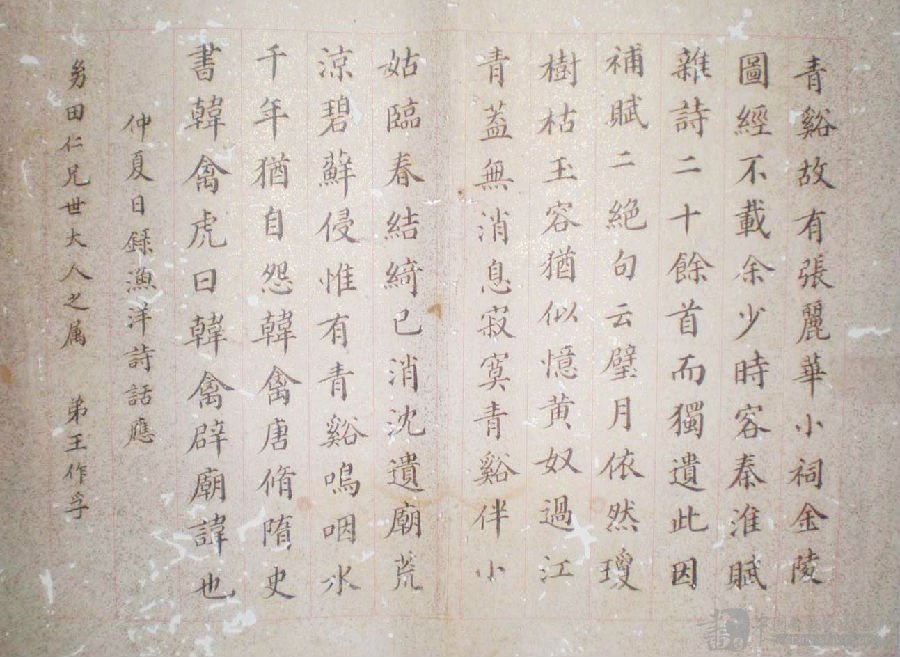 青谿故有張麗華小祠金陵
圖經不載余少時客秦淮賦
雜詩二十餘首而獨遺此因
補賦二絕句云璧月依然瓊
樹枯玉容猶似憶黃奴過江
青蓋無消息寂寞青谿伴小
姑臨春結綺已消沈遺廟荒
涼碧蘚侵惟有青谿嗚咽水
千年猶自怨韓禽唐脩隋史
書韓禽虎曰韓禽辟廟諱也
仲夏日錄漁洋詩話應
田仁兄世大人之属 弟王作孚